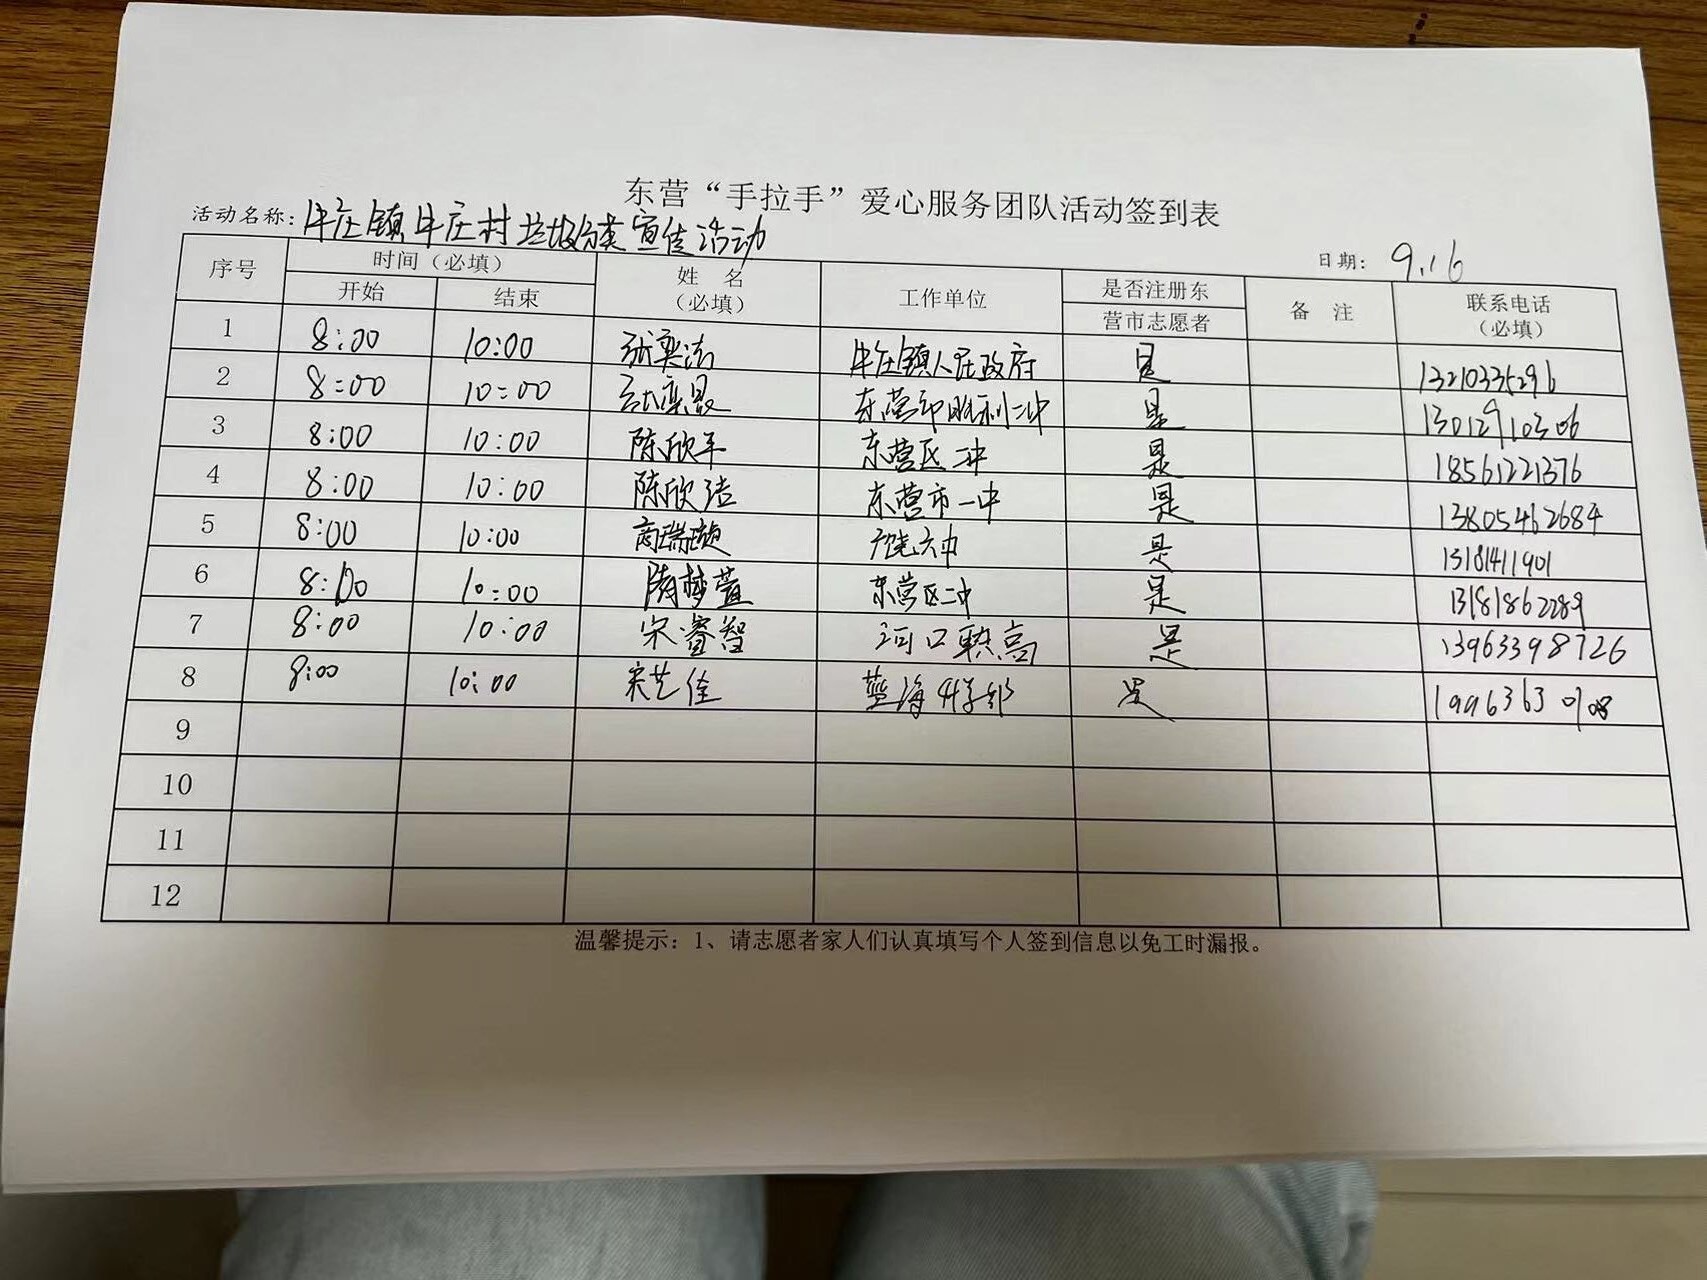 东营“手拉手”爱心服务团队活动签到表
活动名称：牛庄镇牛庄村垃圾分类宣传活动
日期： 9.16
序号 时间（必填） 开始 结束 姓 名 （必填） 工作单位 是否注册东营市志愿者 备 注 联系电话 （必填）
1 8:00 10:00 牛庄镇人民政府 是 13210335296
2 8:00 10:00 东营市胜利二中 是 13012910306
3 8:00 10:00 陈欣平 东营区二中 是 18561221376
4 8:00 10:00 陈欣洁 东营市一中 是 13805462684
5 8:00 10:00 商瑞 六中 是 13181411901
6 8:00 10:00 隋梦萱 东营区二中 是 13181862289
7 8:00 10:00 宋睿智 河口 高 是 13963398726
8 8:00 10:00 宋艺佳 蓝海 是 19963630108
9
10
11
12
温馨提示：1、请志愿者家人们认真填写个人签到信息以免工时漏报。